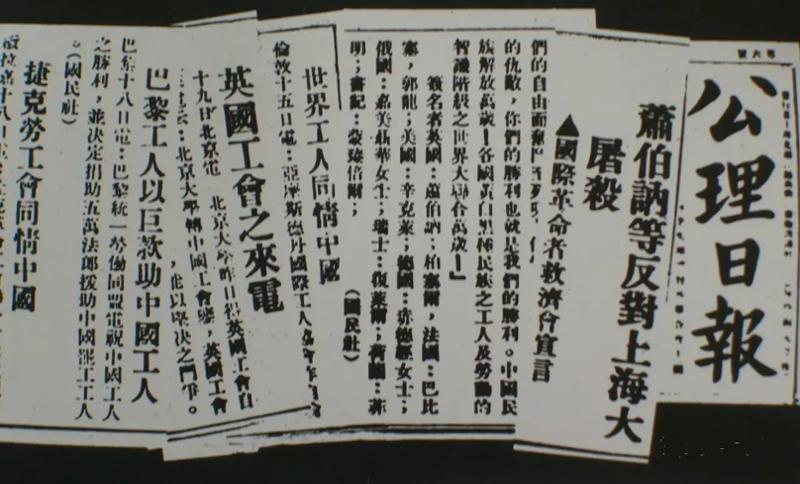 第六號
公理日報
蕭伯訥等反對上海大
屠殺
▲國際革命者救濟會宣言
們的自由而奮鬥
的仇敵，你們的勝利也就是我們的勝利。中國民
族解放萬歲！各國黃白黑種民族之工人及勞動的
智識階級之世界大聯合萬歲！』
簽名者英國：蕭伯訥；柏塞爾，法國：巴比
塞，郭龍；美國：辛克萊；德國：女士；
俄國：嘉美華女士；瑞士：復萊爾；荷蘭：菲
明；書記：蒙臻倍爾；
（國民社）
世界工人同情中國
倫敦十五日電：亞摩斯德丹國際工人
英國工會之來電
十九日北京電 北京大學昨日得英國工會自
北京大學轉中國工會鑒，英國工會
以堅決之鬥爭。
巴黎工人以巨款助中國工人
巴黎十八日電：巴黎統一勞働同盟電祝中國工人
之勝利，並決定捐助五萬法郎援助中國罷工工人
。（國民社）
捷克勞工會同情中國
拉格十八日電